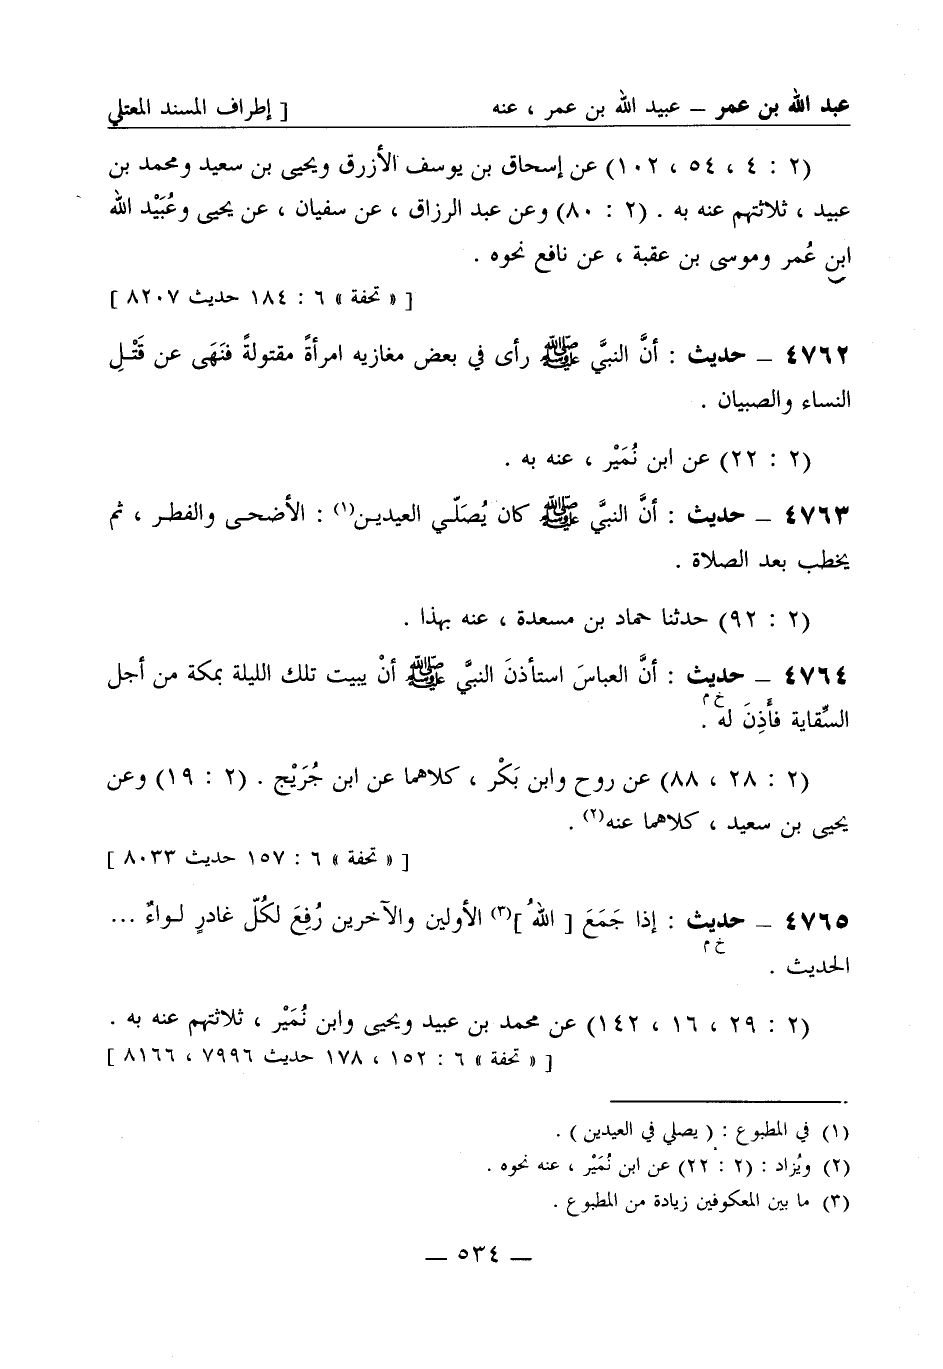 عبد الله بن عمر – عبيد الله بن عمر ، عنه [ إطراف المسند المعتلي
(٢ : ٤ ، ٥٤ ، ١٠٢) عن إسحاق بن يوسف الأزرق ويحيى بن سعيد ومحمد بن
عبيد ، ثلاثتهم عنه به . (٢ : ٨٠) وعن عبد الرزاق ، عن سفيان ، عن يحيى وعُبَيْد الله
ابن عُمر وموسى بن عقبة ، عن نافع نحوه .
[ « تحفة » ٦ : ١٨٤ حديث ٨٢٠٧ ]
٤٧٦٢ – حديث : أنَّ النبيَّ ﷺ رأى في بعض مغازيه امرأةً مقتولةً فنَهَى عن قَتْلِ
النساء والصبيان .
(٢ : ٢٢) عن ابن نُمَيْر ، عنه به .
٤٧٦٣ – حديث : أنَّ النبيَّ ﷺ كان يُصَلّي العيدين(١) : الأضحى والفطر ، ثم
يخطب بعد الصلاة .
(٢ : ٩٢) حدثنا حماد بن مسعدة ، عنه بهذا .
٤٧٦٤ – حديث : أنَّ العباسَ استأذنَ النبيَّ ﷺ أنْ يبيت تلك الليلة بمكة من أجل
خ م
السِّقاية فأَذِنَ له .
(٢ : ٢٨ ، ٨٨) عن روح وابن بَكْر ، كلاهما عن ابن جُرَيْج . (٢ : ١٩) وعن
يحيى بن سعيد ، كلاهما عنه(٢) .
[ « تحفة » ٦ : ١٥٧ حديث ٨٠٣٣ ]
٤٧٦٥ – حديث : إذا جَمَعَ [ اللهُ ](٣) الأولين والآخرين رُفِعَ لكُلّ غادرٍ لواءٌ ...
خ م
الحديث .
(٢ : ٢٩ ، ١٦ ، ١٤٢) عن محمد بن عبيد ويحيى وابن نُمَيْر ، ثلاثتهم عنه به .
[ « تحفة » ٦ : ١٥٢ ، ١٧٨ حديث ٧٩٩٦ ، ٨١٦٦ ]
(١) في المطبوع : ( يصلي في العيدين ) .
(٢) ويُزاد : (٢ : ٢٢) عن ابن نُمَيْر ، عنه نحوه .
(٣) ما بين المعكوفين زيادة من المطبوع .
– ٥٣٤ –